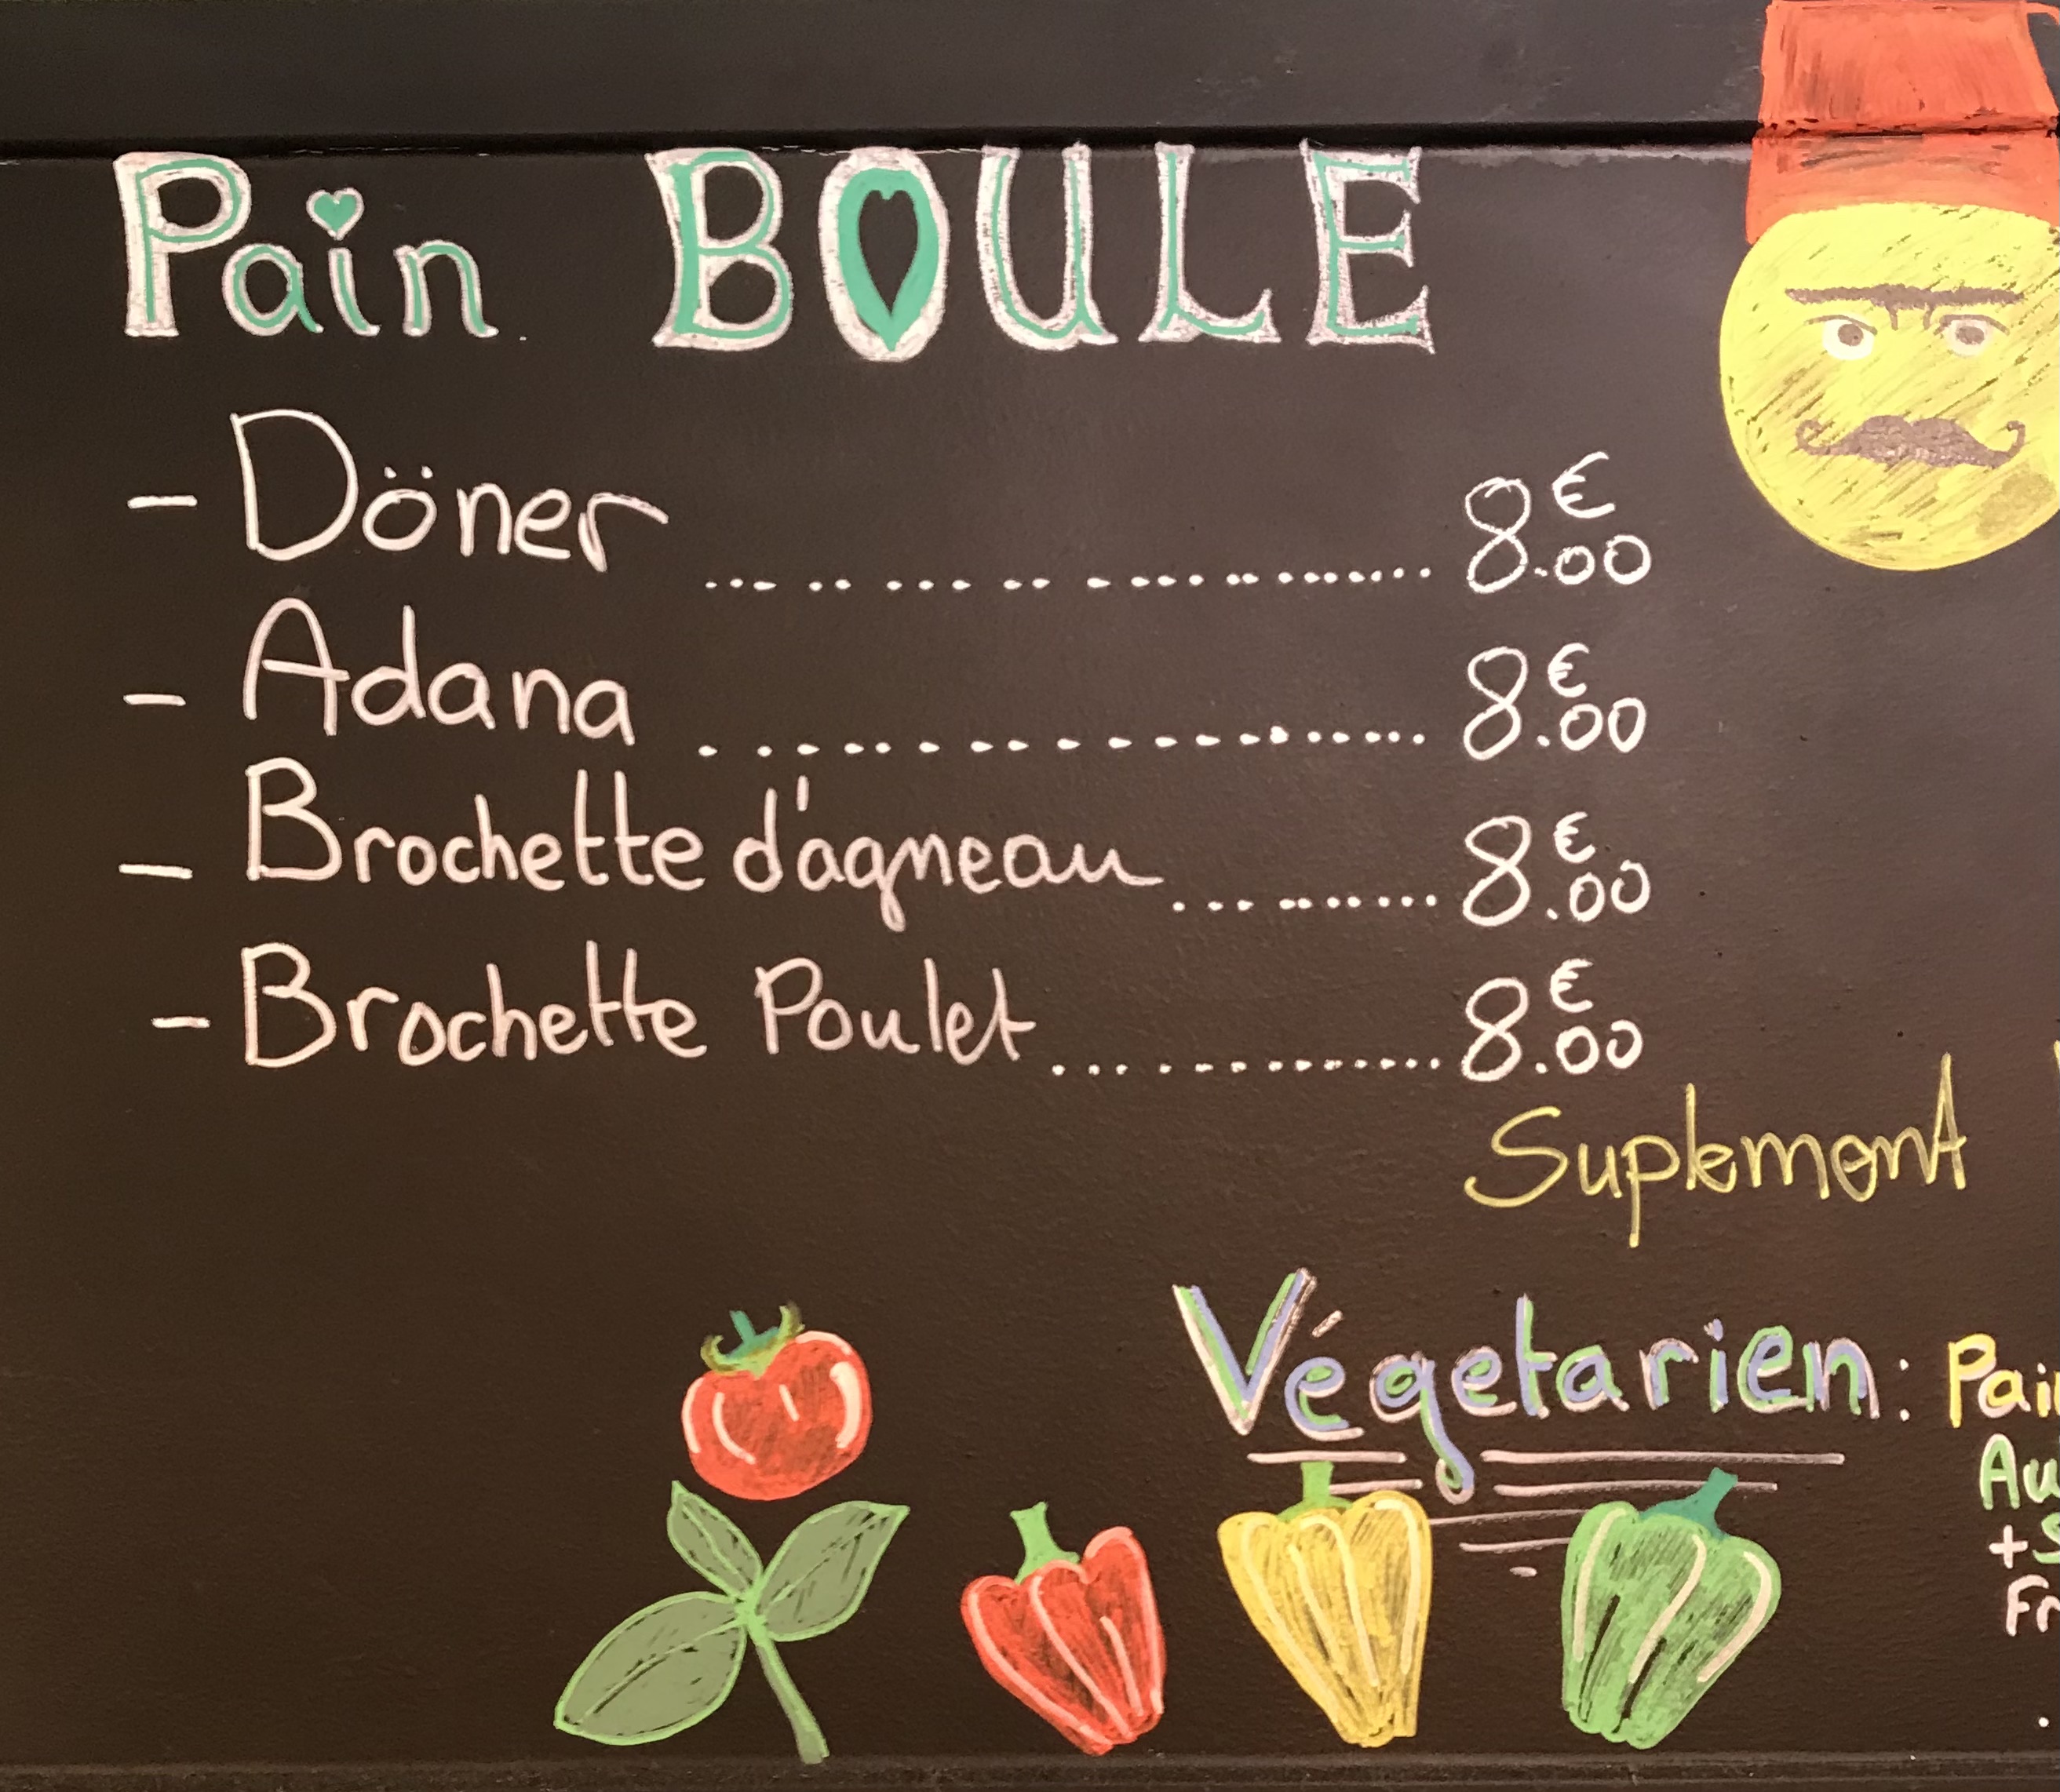 Pain BOULE
- Döner ........................ 8.00 €
- Adana ........................ 8.00 €
- Brochette d'agneau .......... 8.00 €
- Brochette Poulet ............. 8.00 €
Suplement
Végetarien : Pain
Au
+ S
Fr